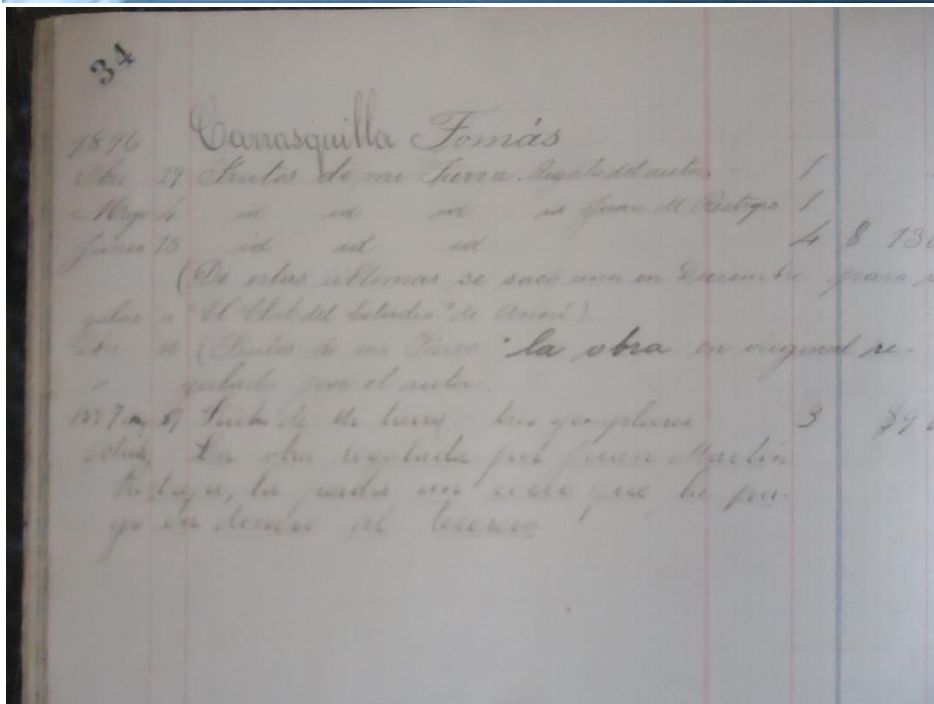 34
1896 Carrasquilla Tomás
29 Frutos de mi Tierra. Regalo del autor. 1
Mayo 4 id id id id Juan M Restrepo 1
Junio 15 id id id 4 8 13
(De estas ultimas se sacó una en Diciembre para
galar a "El Club del Estudio" de Anorí).
(Frutos de mi Tierra "la obra en original re-
galada por el autor.
1897 tierra tres ejemplares 3 $7
La obra regalada por Juan Martin
la perdió un socio que la pa-
gó en dinero al tesorero